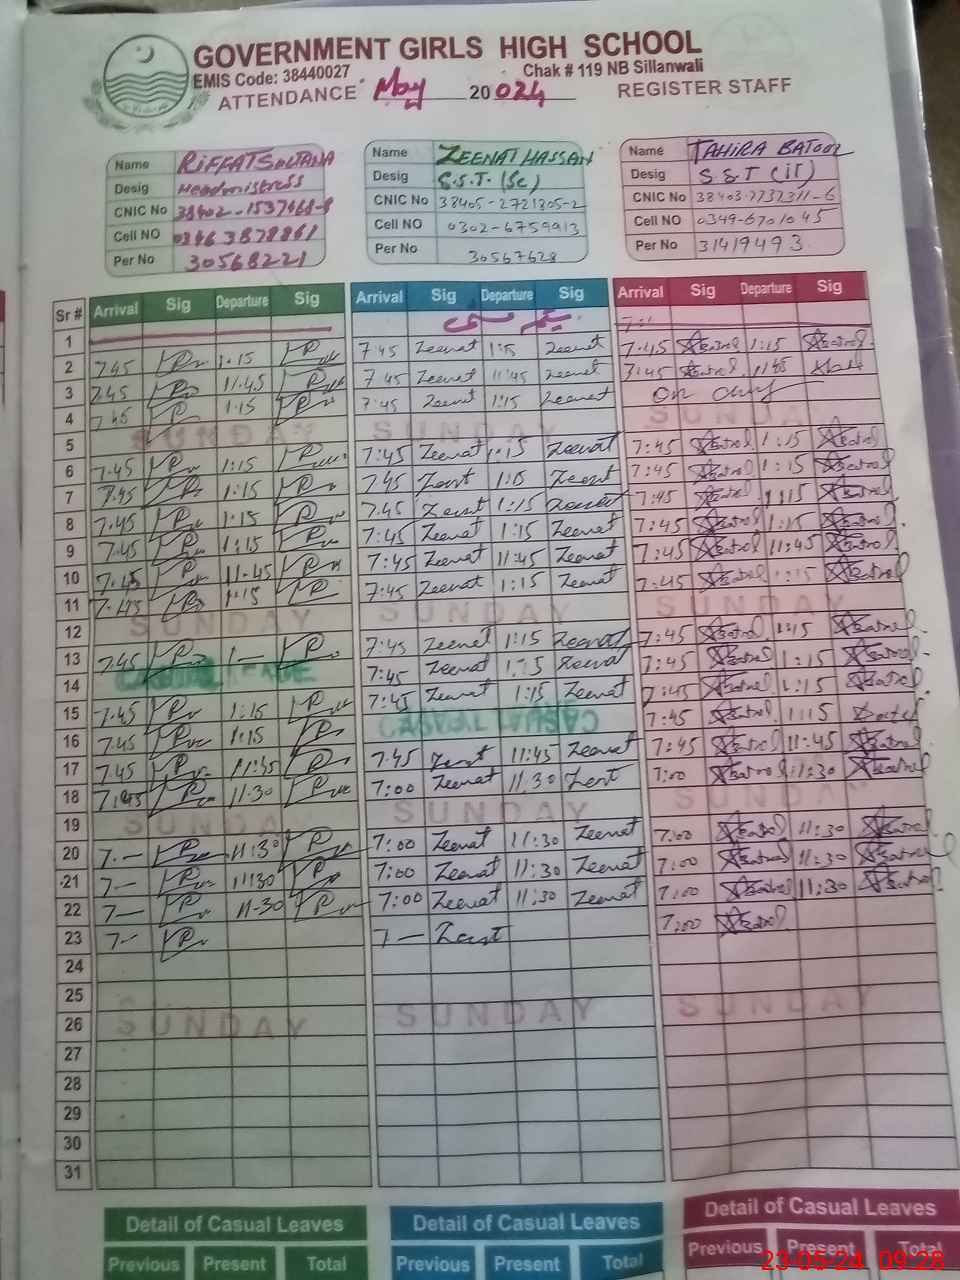 GOVERNMENT GIRLS HIGH SCHOOL
EMIS Code: 38440027 Chak # 119 NB Sillanwali
ATTENDANCE May 2024 REGISTER STAFF
Name RIFFAT SULTANA Name ZEENAT HASSAN Name TAHIRA BATOOL
Desig Headmistress Desig S.S.T. (Sc) Desig S.S.T (IT)
CNIC No CNIC No 38405-2721805-2 CNIC No
Cell NO Cell NO 0302-6759913 Cell NO 0349-6701045
Per No 30568221 Per No 30567628 Per No 31419493
Sr # Arrival Sig Departure Sig Arrival Sig Departure Sig Arrival Sig Departure Sig
1
2 7.45 1.15 7:45 Zeenat 1:15 Zeenat 7.45 1:15
3 7.45 11.45 7:45 Zeenat 11:45 Zeenat 7:45 11:45
4 7.45 1.15 7:45 Zeenat 1:15 Zeenat On duty
5 SUNDAY SUNDAY SUNDAY
6 7.45 1:15 7:45 Zeenat 1:15 Zeenat 7:45 1:15
7 7.45 1.15 7.45 Zeenat 1:15 Zeenat 7:45 1:15
8 7.45 1.15 7.45 Zeenat 1:15 Zeenat 7:45 1:15
9 7.45 1:15 7:45 Zeenat 1:15 Zeenat 7:45 1:15
10 7.45 11.45 7:45 Zeenat 11:45 Zeenat 7:45 11:45
11 7.45 1.15 7:45 Zeenat 1:15 Zeenat 7:45 1:15
12 SUNDAY SUNDAY SUNDAY
13 7.45 1— 7:45 Zeenat 1:15 Zeenat 7:45 1:15
14 CASUAL LEAVE 7:45 Zeenat 1:15 Zeenat 7:45 1:15
15 7.45 1:15 7:45 Zeenat 1:15 Zeenat 7:45 1:15
16 7.45 1:15 CASUAL LEAVE 7:45 1:15
17 7.45 11:45 7.45 Zeenat 11:45 Zeenat 7:45 11:45
18 7.45 11.30 7:00 Zeenat 11.30 Zeenat 7:00 11:30
19 SUNDAY SUNDAY SUNDAY
20 7.— 11:30 7:00 Zeenat 11:30 Zeenat 7:00 11:30
21 7— 11:30 7:00 Zeenat 11:30 Zeenat 7:00 11:30
22 7— 11-30 7:00 Zeenat 11:30 Zeenat 7:00 11:30
23 7- 7— Zeenat 7:00
24
25
26 SUNDAY SUNDAY SUNDAY
27
28
29
30
31
Detail of Casual Leaves Detail of Casual Leaves Detail of Casual Leaves
Previous Present Total Previous Present Total Previous Present Total
23-05-24 09:28